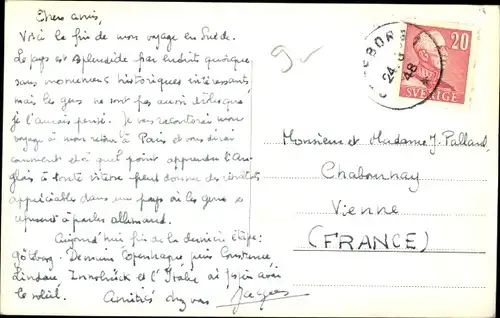 Chers amis,
Voici la fin de mon voyage en Suède.
Le pays est splendide par endroit quoique
sans monuments historiques intéressants,
mais les gens ne sont pas aussi que
je l'aurais pensé. Je vous raconterai mon
voyage à mon retour à Paris et vous dirai
comment et à quel point apprendre l'An-
glais à toute vitesse peut donner des résultats
appréciables dans un pays où les gens se
refusent à parler allemand.
Aujourd'hui fin de la dernière étape:
Götborg. Demain Copenhague puis Constance,
Lindau, Innsbrück et l'Italie où j'espère avoir
le soleil. Amitiés chez vous Jacques
9-
GÖTEBORG
24. 8. 48
20
SVERIGE
Monsieur et Madame J. Palland,
Chabournay
Vienne
(FRANCE)